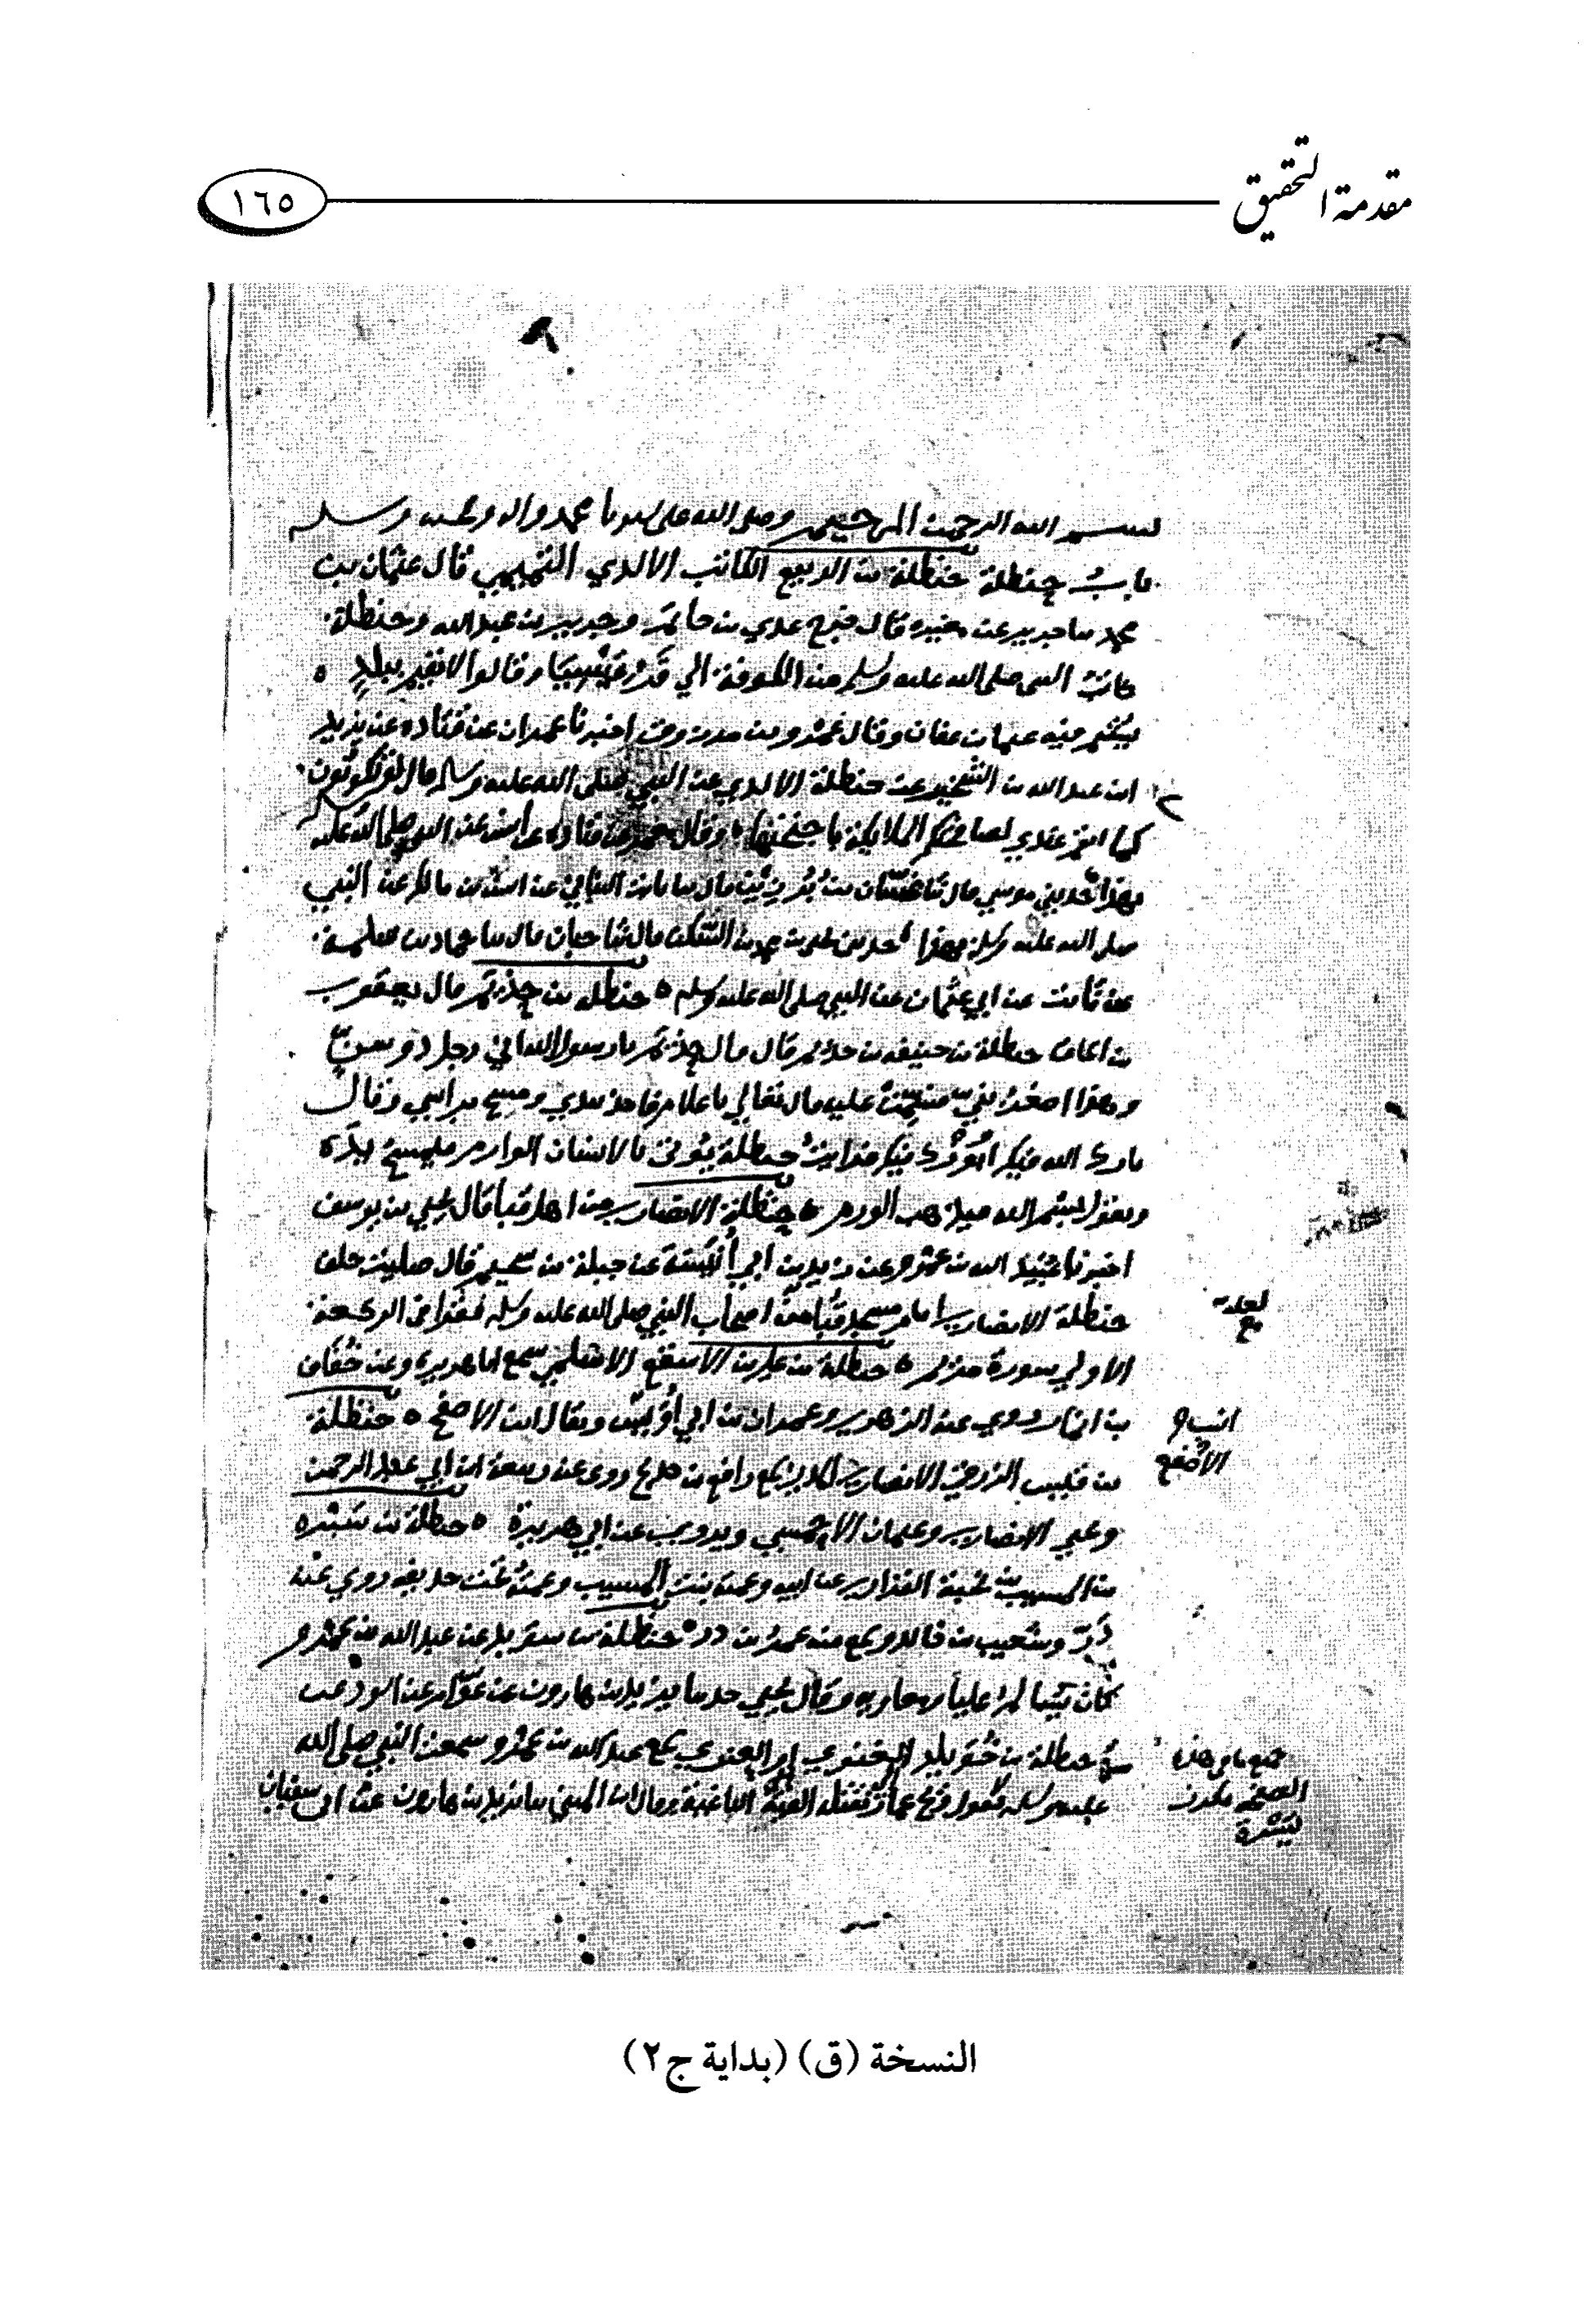 مقدمة التحقيق
١٦٥
بسم الله الرحمن الرحيم وصلى الله على سيدنا محمد واله وصحبه وسلم
باب حنظلة حنظلة بن الربيع الكاتب الاسدي التميمي قال عثمان بن
محمد نا جرير عن مغيره قال خرج عدي بن حاتم وجرير بن عبد الله وحنظلة
كاتب النبي صلى الله عليه وسلم من الكوفة الي قرقيسيا وقالوا لا نقيم ببلد
يشتم فيه عثمان بن عفان وقال عمرو بن مرزوق اخبرنا عمران عن قتاده عن يزيد
ابن عبد الله بن الشخير عن حنظلة الاسدي عن النبي صلى الله عليه وسلم قال لو تكونون
كما انتم عندي لصافحتكم الملايكة باجنحتها وقال عن قتاده عن انس عن النبي صلى الله عليه
بهذا حدثني موسي قال نا غسان بن برزين قال نا ثابت البناني عن انس بن مالك عن النبي
صلى الله عليه وسلم بهذا حدثني يحيى بن محمد بن السكن قال نا حبان قال نا حماد بن سلمة
عن ثابت عن ابي عثمان عن النبي صلى الله عليه وسلم ه حنظلة بن حذيم قال يعقوب
بن اسحاق حنظلة بن حنيفه بن حذيم قال قال حذيم يا رسول الله اني رجل ذو بنين
وهذا اصغر بني فسمت عليه قال تعالي يا غلام فاخذ بيدي ومسح براسي وقال
بارك الله فيك او بورك فيك فرايت حنظلة يوتى بالانسان الوارم فيمسح يده
ويقول بسم الله فيذهب الورم ه حنظلة الانصاري من اهل قبا قال يحيي بن يوسف
اخبرنا عبيد الله بن عمرو عن زيد بن ابي انيسة عن جبلة بن سحيم قال صليت خلف
حنظلة الانصاري امام مسجد قبا من اصحاب النبي صلى الله عليه وسلم فقرا في الركعة
الاولي سورة مريم ه حنظلة بن علي بن الاسقع الاسلمي سمع ابا هريرة وعن خفاف
بن ايما روي عنه الزهري وعمران بن ابي انيس ويقال ابن الاصقع ه حنظلة
بن قيس الزرقي الانصاري المديني سمع رافع بن خديج روى عنه ربيعة ابن ابي عبد الرحمن
ويحيى الانصاري وعثمان الاخنسي ويروي عن ابي هريرة ه حنظلة بن سبره
بن المسيب بن نجبة الفزاري عن ابيه وعمته بنت المسيب وعمته تحت حذيفه روي عنه
ذر وشعيب بن خالد وسمع منه عمر بن ذر ه حنظلة بن سويد عن عبد الله بن عمرو
وقال يحيى حدثنا يزيد بن هارون عن عوام عن الاسود عن
حنظلة بن خويلد الغنوي سمع عبد الله بن عمرو سمع النبي صلى الله
عليه وسلم يقول في عمار تقتله الفئة الباغية وقال ابن المثنى نا يزيد بن هارون
لعله
انس
الاصقع
جميع ما في هذه
النسخة
النسخة (ق) (بداية ج٢)